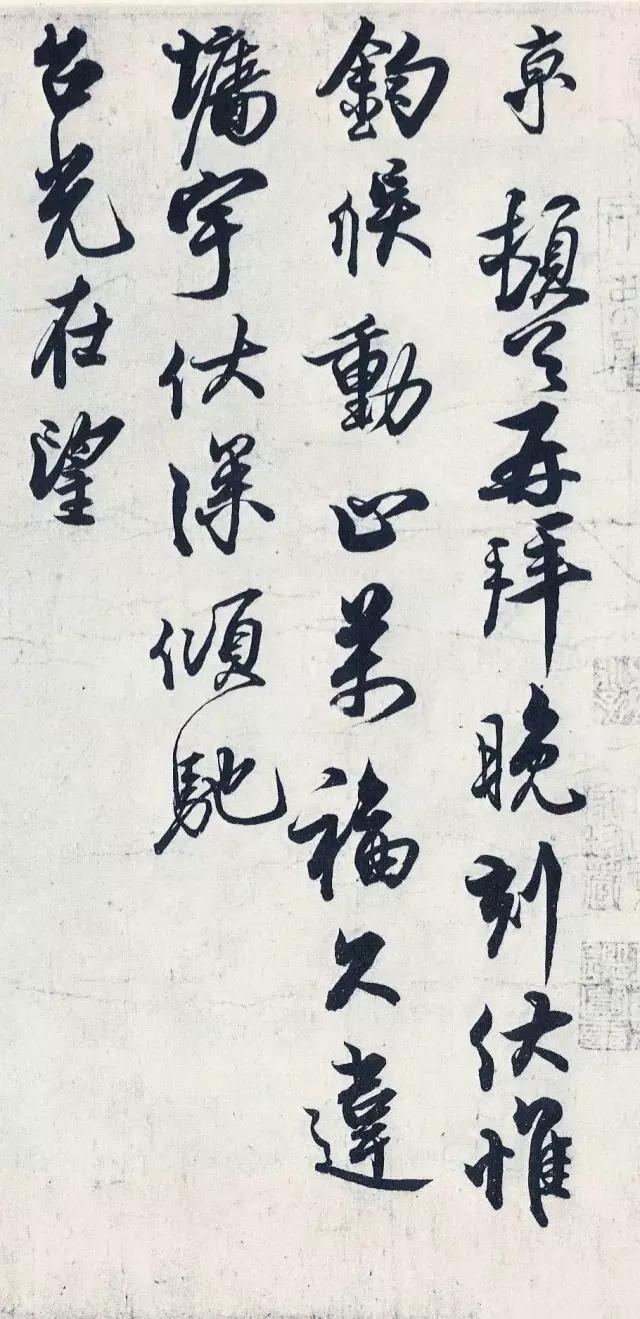 京頓首再拜晚刻伏惟
鈞候動止萬福久違
墻宇伏深傾馳
台光在望